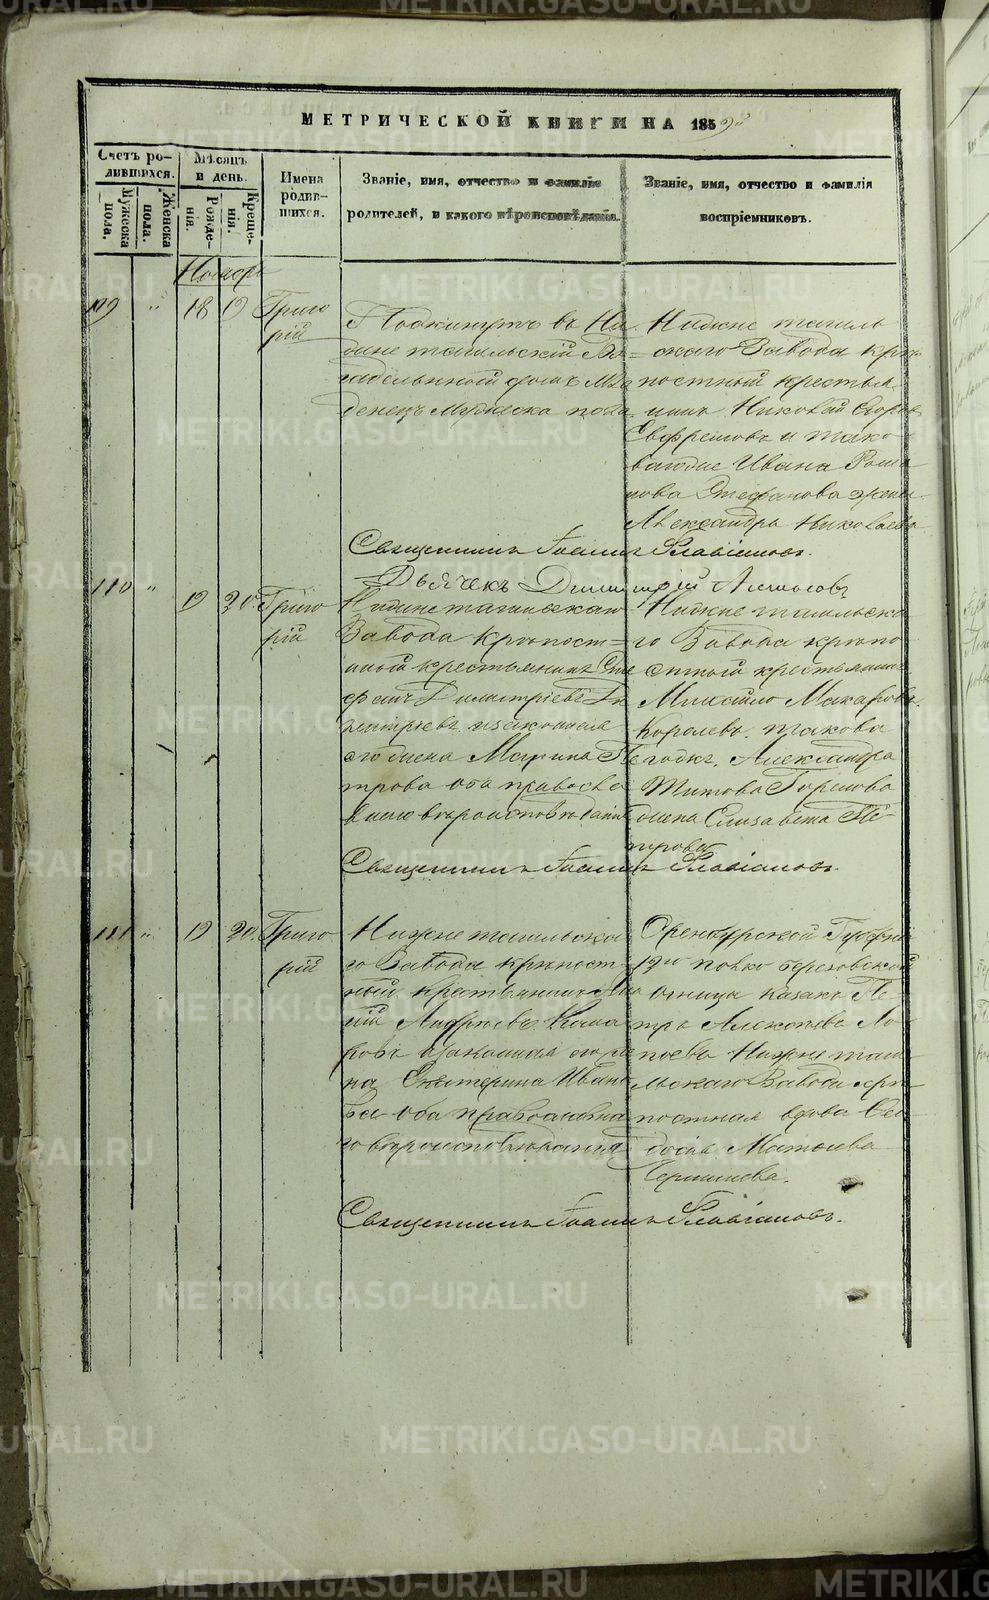 МЕТРИЧЕСКОЙ КНИГИ НА 1859й
Счетъ ро-
дившихся.
Мужеска
пола.
Женска
пола.
Мѣсяцъ
и день.
Рожде-
нія.
Креще-
нія.
Имена
родив-
шихся.
Званіе, имя, отчество и фамилія
родителей, и какого вѣроисповѣданія.
Званіе, имя, отчество и фамилія
воспріемниковъ.
Ноябрь
109 " 18 19 Григо
рій
Подкинутъ въ Ни
жне тагильскій
домъ Мла
денецъ Мужеска пола
Нижне тагиль
скаго Завода крѣ
постный крестья
нинъ Николай Егоровъ
Ефремовъ и тако
ваго же Ивана Рома
нова Стефанова жена
Александра Николаева
Священникъ Іоаннъ Флавіановъ.
Дьячекъ Димитрій
110 " 19 20 Григо
рій
Нижне тагильскаго
Завода крѣпост=
ный крестьянинъ Сте
фанъ Димитріевъ
и законная
его жена Марина Пе
трова оба правосла
внаго вѣроисповѣданія
Нижне тагильска
го Завода крѣпо
стной крестьянинъ
Михаило Макаровъ
Королевъ. такова
годкъ. Александра
Титова Горшова
жена Елизавета Пе-
трова
Священникъ Іоаннъ Флавіановъ.
111 " 19 20 Григо
рій
Нижне тагильска
го Завода крѣпост
ный крестьянинъ
Андреевъ Кома
ровъ и законная его же
на Екатерина Ивано
ва оба православна
го вѣроисповѣданія
Оренбурской Губерніи
12го полко березовской
станицы казакъ Пе
тръ Алексѣевъ
Нижне таги
льскаго Завода крѣ
постная вдова
Матвѣева
Священникъ Іоаннъ Флавіановъ.
METRIKI.GASO-URAL.RU